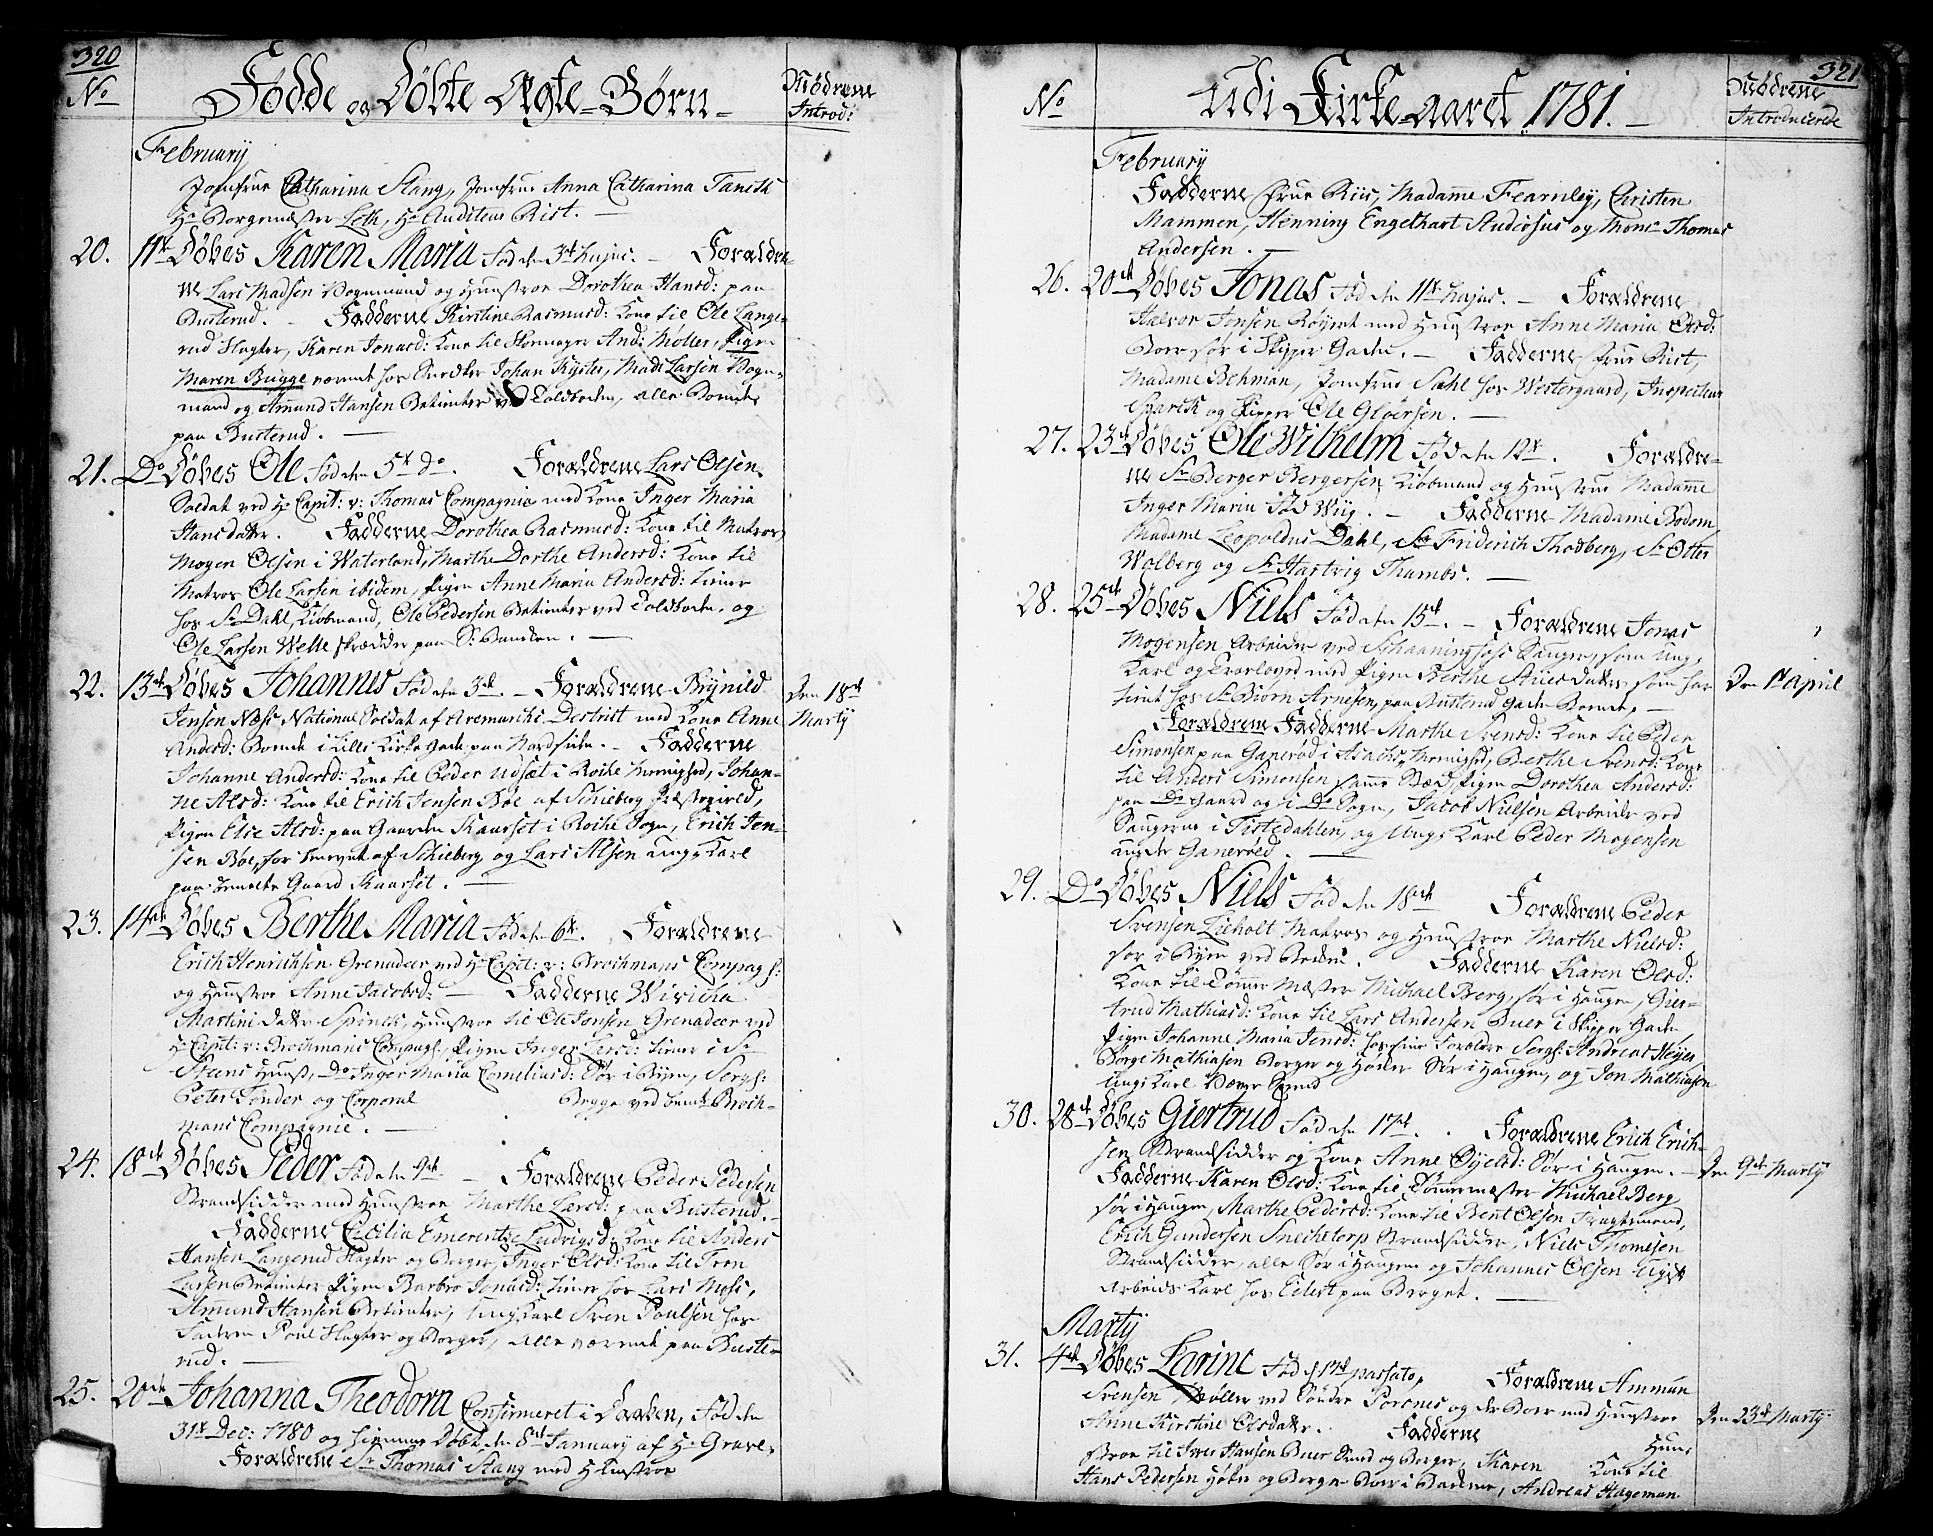 320
No
Fødde og Døbte Ægte-Børn
Mødrene
Introd:
February
Jomfrue Catharina Stang, Jomfrue Anna Catharina Tank
Hr Borgemæster Leth, Hr Auditeur Rist.
20. 11te Døbes Karen Maria Fød den 3de hujus. Forældre
ne Lars Madsen Vognmand og Hustroe Dorothea Hansd: paa
Busterud. Fadderne Kirstine Rasmusd: Kone til Ole Lange-
rud Slagter, Karen Jonasd: Kone til Skomager And: Møller, Pigen
Maren Bugge værende hos Snedker Johan Kyster, Mads Larsen Vogn-
mand og Amund Hansen Betienter ved Toldboden, alle Boende
paa Busterud.
21. Do Døbes Ole Fød den 5te do. Forældrene Lars Olsen
Soldat ved Hr Capit: v: Thomas Compagnie med Kone Inger Maria
Hansdatter. Fadderne Dorothea Rasmusd: Kone til Matros
Mogen Olsen i Waterland, Marthe Dorthe Andersd: Kone til
Matros Ole Larsen ibidem, Pigen Anne Maria Andersd: tiener
hos Sr Dahl, Kiøbmand, Ole Pedersen Betienter ved Toldboden, og
Ole Larsen Welle skrædder paa S: Banken.
22. 13de Døbes Johannes Fød den 3de. Forældrene Brynild
Jensen Næss National Soldat af Aremarks Destrict med Kone Anne
Andersd: Boende i Lille Kirke Gade paa Nordsiden. Fadderne
Johanne Andersd: Kone til Peder Udsæt i Rokke Menighed, Johan-
ne Alsd: Kone til Erich Jensen Bøe af Schieberg Præstegield,
Pigen Else Alsd: paa Gaarden Kaarset i Rokke Sogn, Erich Jen-
sen Bøe, før benevnt af Schieberg og Lars Alsen ung Karl
paa bemelte Gaard Kaarset.
Den 18de
Marty
23. 14de Døbes Berthe Maria Fød den 6te. Forældrene
Erich Henrichsen Grenadeer ved Hr Capit: v: Brochmans Compag:
og Hustroe Anne Jacobsd: Fadderne Wiricha
Martini datter Spinck, Hustroe til Ole Jonsen Grenadeer ved
Hr Capit: v: Brochmans Compag:, Pigen Inger Larsd: tiener i Sr
Steens Huus, Do Inger Maria Cornelius: Sør i Byen, Sergt:
Peter Tønder og Corporal Begge ved bemte Broch-
mans Compagnie.
24. 18de Døbes Peder Fød den 9de. Forældrene Peder Pedersen
Strandsidder med Hustroe Marthe Larsd: paa Busterud.
Fadderne Cecilia Emerentze Ludvigsd: Kone til Anders
Hansen Langerud Slagter og Borger, Inger Olsd: Kone til Tron
Larsen Betienter Pigen Barbro Jonasd: tiener hos Lars Moss,
Amund Hansen Betienter, Ung Karl Sven Poulsen hos
Faderen Poul Slagter og Borger, alle værende paa Buste-
rud.
25. 20de Johanna Theodora Confirmeret i Daaben, Fød den
31te Dec: 1780 og hiemme Døbt den 8de January af Hr Grave,
Forældrene Sr Thomas Stang med Hustroe
321
No
Udi Kirke-aaret 1781.
Mødrene
Introducerede
February
Fadderne Frue Riis, Madame Fearnley, Christen
Mammen, Henning Engelhart Audiøsus og Mons Thomas
Andersen.
26. 20de Døbes Jonas Fød den 11te hujus. Forældrene
Halvor Jonsen Røymt med Hustroe Anne Maria Olsd:
Boer sør i Skipper Gaden. Fadderne Frue Rist,
Madame Behman, Jomfrue Dahl hos Westergaard, Inspecteur
Sparck og Skipper Ole Gløersen.
27. 23de Døbes Ole Wilhelm Fød den 12te. Forældre-
ne Sr Berger Bergersen Kiøbmand og Hustrue Madame
Inger Maria Fød Wiig. Fadderne Madame Bodom,
Madame Leopoldus Dahl, Sr Friderich Thodberg, Sr Otter
Wolberg og Sr Hartvig Thambs.
28. 25de Døbes Niels Fød den 15de. Forældrene Jonas
Mogensen Arbeider ved Schaaningfoss Sauger, som ung
Karl og trorlovet med Pigen Berthe Anesdatter som har
tient hos Sr Biørn Arnesen, paa Busterud Gade Boende.
Den 1te April
Forældrene Fadderne Marthe Svensd: Kone til Peder
Simonsen paa Ganerød i Asachs Menighed, Berthe Svensd: Kone
til Anders Simonsen samme Stæd, Pigen Dorothea Andersd:
paa Do Gaard og i Do Sogn, Jacob Nielsen Arbeider ved
Saugerne i Tistedahlen, og Ung Karl Peder Mogensen
under Ganerød.
29. Do Døbes Niels Fød den 18de Forældrene Peder
Svensen Lieholt Matros og Hustroe Marthe Nielsd:
sør i Byen ved Broen. Fadderne Karen Olsd:
Kone til Tømmer Mæster Michael Berg, sør i Haugen, Gier-
trud Mathiasd: Kone til Lars Andersen Buer i Skipper Gaden,
Pigen Johanne Maria Jensd: hos sine Forældre Sergt: Andreas Heyer,
Børge Mathiasen Borger og Høker Sør i Haugen, og Jon Mathiasen
Ung Karl Væver Svend
30. 28de Døbes Giertrud Fød den 17de. Forældrene Erich Erich-
sen Strandsidder og Kone Anne Øyelsd: Sør i Haugen.
Den 9de Marty
Fadderne Karen Olsd: Kone til Tømmermæster Michael Berg
sør i Haugen, Marthe Pedersd: Kone til Bent Olsen Fragtemand,
Erich Gundersen Snechetorp Strandsidder, Niels Thomesen
Strandsidder, alle Sør i Haugen og Johannes Olsen Ugift
Arbeids Karl hos Eilert paa Berget.
Marty
31. 4de Døbes Larine Fød d 17de passato, Forældrene Ammun
Svensen Møller ved Søndre Porsnes og der Boer med Hustroe
Anne Kirstine Olsdatter. Fadderne
Den 23de Marty
Huus
Stroe til Iver Hansen Buer Smed og Borger, Karen Kone til
Hans Pedersen Høker og Borger Boer i Banken, Andreas Hageman